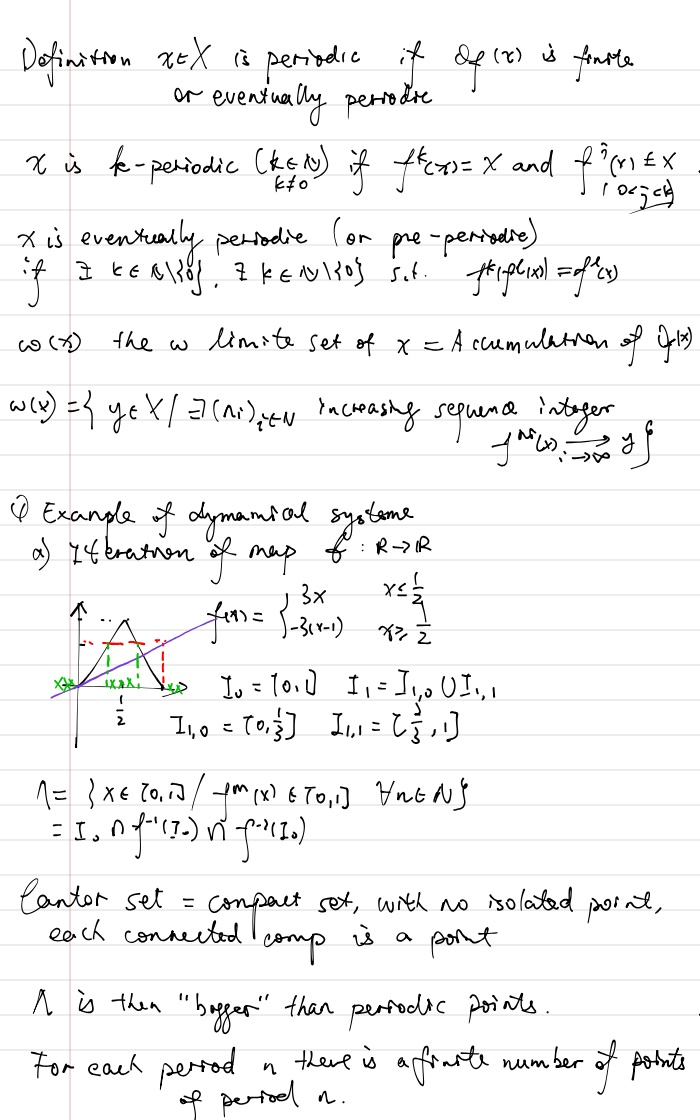 Definition x∈X is periodic if Of(x) is finite
or eventually periodic
x is k-periodic (k∈N) if f^k(x)=x and f^j(x)≠x
k≠0 / 0<j<k
x is eventually periodic (or pre-periodic)
if ∃ k∈N\{0}, ∃ k∈N\{0} s.t. f^k(f^l(x))=f^l(x)
ω(x) the ω limite set of x = Accumulation of Of(x)
ω(x)={ y∈X / ∃(ni)i∈N increasing sequence integer
f^ni(x) → y}
i→∞
Example of dynamical systeme
a) Iteration of map f: R→R
f(x) = { 3x x≤1/2
-3(x-1) x≥1/2
1/2
I0 = [0,1] I1 = I1,0 ∪ I1,1
I1,0 = [0,1/3] I1,1 = [2/3,1]
Λ = {x∈[0,1] / f^n(x)∈[0,1] ∀n∈N}
= I0 ∩ f^-1(I0) ∩ f^-2(I0)
Cantor set = compact set, with no isolated point,
each connected comp is a point
Λ is then "bigger" than periodic points.
For each period n there is a finite number of points
of period n.